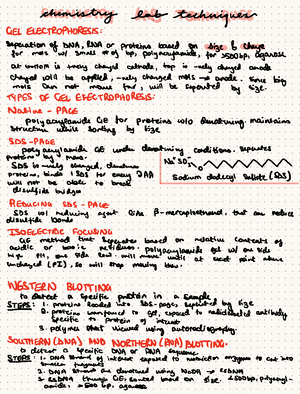 chemistry lab techniques
GEL ELECTROPHORESIS:
Separation of DNA, RNA or proteins based on size & charge
for mols w/ small # of bp, polyacrylamide, for >500bp, agarose
at bottom is +vely charged cathode, top is -vely charged anode
charged will be applied, -vely charged mols → anode. since big
mols can not move far, will be separated by size.
TYPES OF GEL ELECTROPHORESIS:
Native - PAGE
polyacrylamide GE for proteins w/o denaturing. maintains
structure while sorting by size
SDS-PAGE
polyacrylamide GE under denaturing conditions. separates
proteins by mass.
SDS is -vely charged, denatures
proteins, binds 1 SDS for every 2AA
will not be able to break
disulfide bridges
Na⁺ SO₃
Sodium dodecyl sulfate (SDS)
REDUCING SDS-PAGE
SDS w/ reducing agent like β-mercaptoethanol, that can reduce
disulfide bonds
ISOELECTRIC FOCUSING
GE method that separates based on relative contents of
acidic or basic residues. polyacrylamide gel w/ one side
high pH, one side low. will move until at exact point where
uncharged (PI), so will stop moving now.
WESTERN BLOTTING
to detect a specific protein in a sample
STEPS: 1. proteins loaded into SDS-page, separated by size
2. proteins transferred to GE, exposed to radiolabeled antibody
specific to protein of interest
3. polymer sheet viewed using autoradiography.
SOUTHERN (DNA) AND NORTHERN (RNA) BLOTTING.
to detect a specific DNA or RNA sequence
STEPS: 1. DNA strand of interest exposed to restriction enzymes to cut into
smaller fragments
2. DNA strands are denatured using NaOH → ssDNA
3. ssDNA through GE, sorted based on size. <500bp, polyacryl-
amide. >500 bp, agarose.